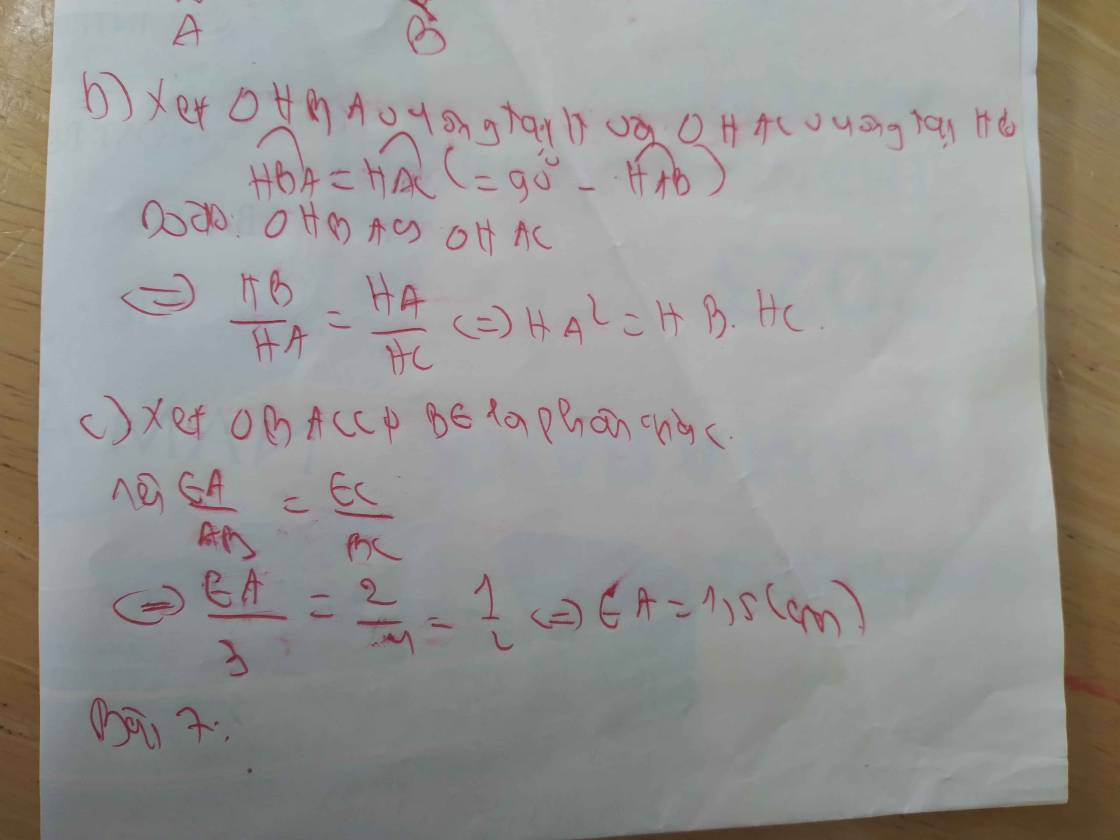 A B
b) Xét ΔHBA vuông tại H và ΔHAC vuông tại H có
HBA = HAC (= 90° - HAB)
Do đó: ΔHBA ∽ ΔHAC
<=> HB/HA = HA/HC <=> HA² = HB.HC.
c) Xét ΔBAC có BE là phân giác.
nên EA/AB = EC/BC
<=> EA/3 = 2/4 = 1/2 <=> EA = 1,5 (cm)
Bài 7: